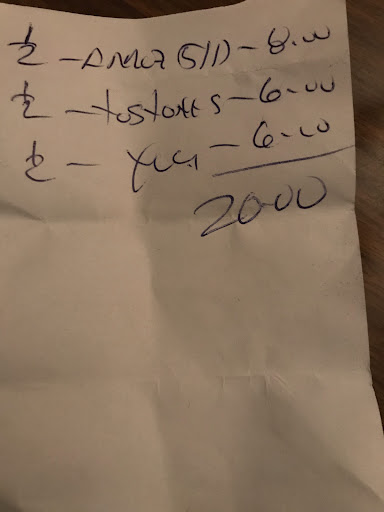 1/2 - Arroz (S/D) - 8.00
1/2 - tostones - 6.00
1/2 - yuca - 6.00
20.00